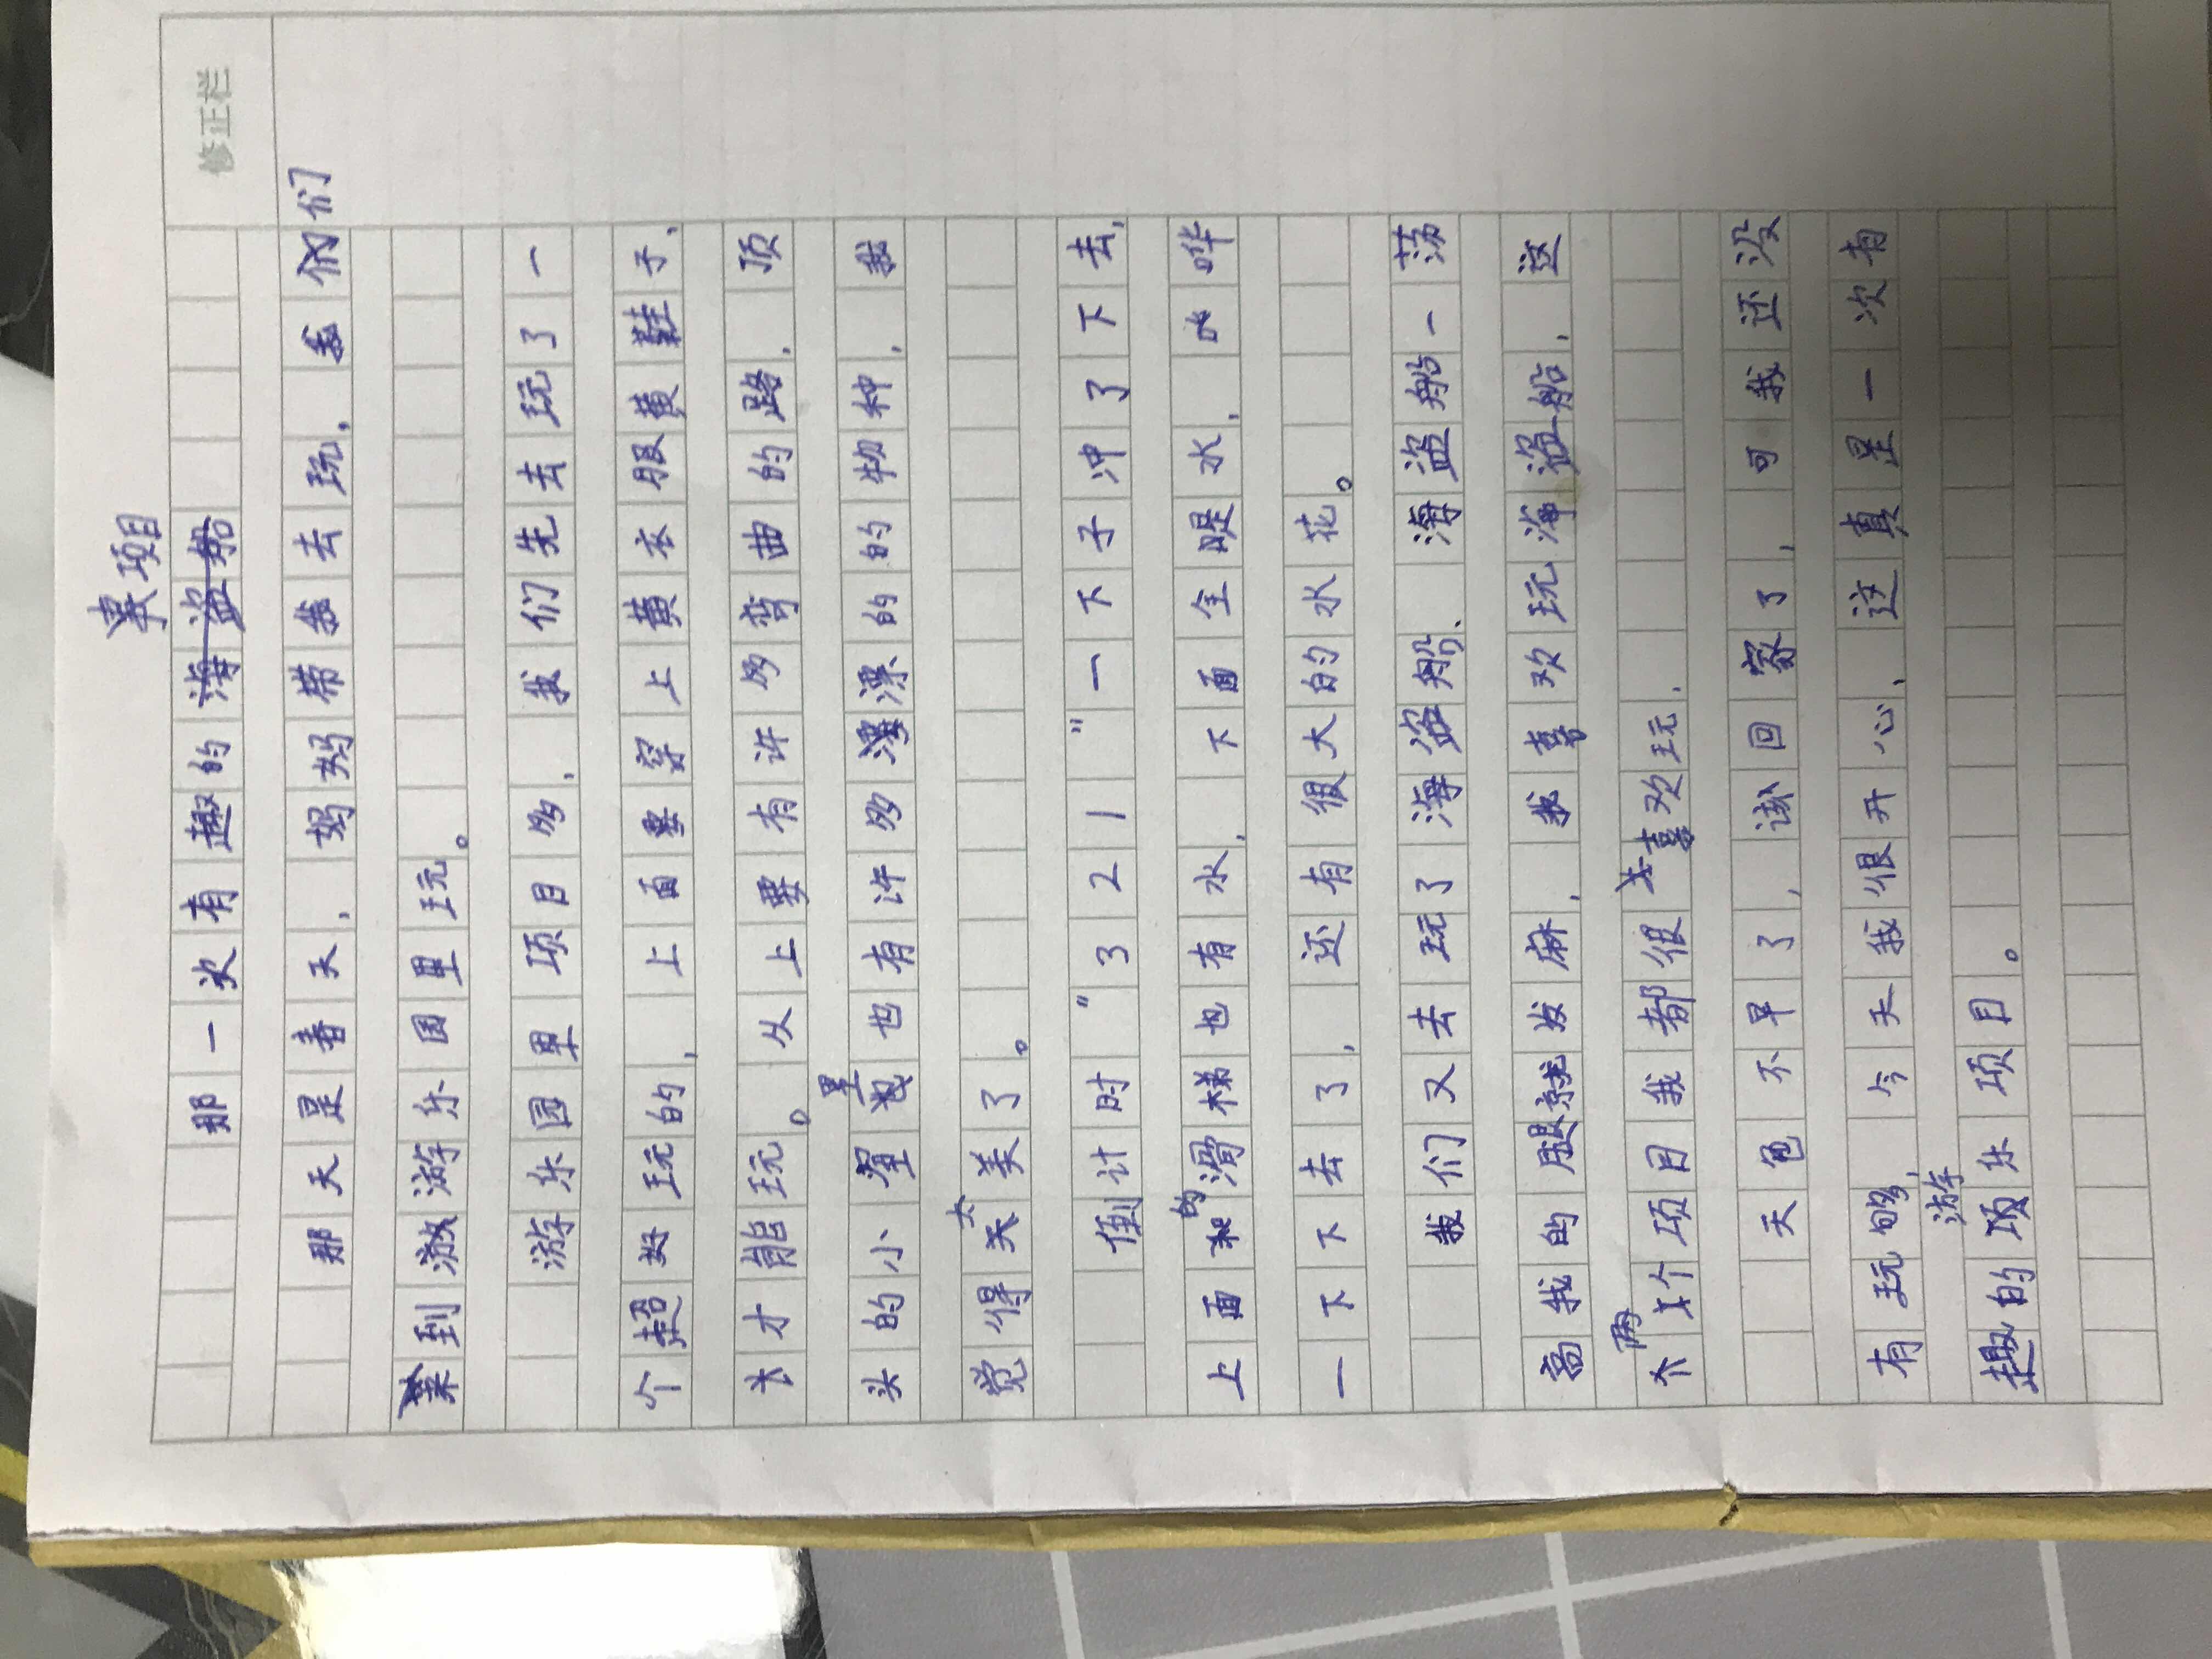 修正栏
项目
那一次有趣的海盗船
那天是春天，妈妈带我去玩，我们
来到游乐园里玩。
游乐园里项目多，我们先去玩了一
个超好玩的，上面要穿上黄衣服黄鞋子、
才能玩。从上要有许多弯曲的路，顶
里
头的小也有许多漂的的物种，我
太
觉得美了。
倒计时"321"一下子冲了下去，
的
上面滑梯也有水，下面全是水，哗
一下下去了，还有很大的水花。
我们又去玩了海盗船、海盗船一荡
高我的腿就发麻，我喜欢玩海盗船，这
两
个项目我都很喜欢玩．
天色不早了，该回家了，可我还没
有玩够，今天我很开心、这真是一次有
游
趣的项乐项目。